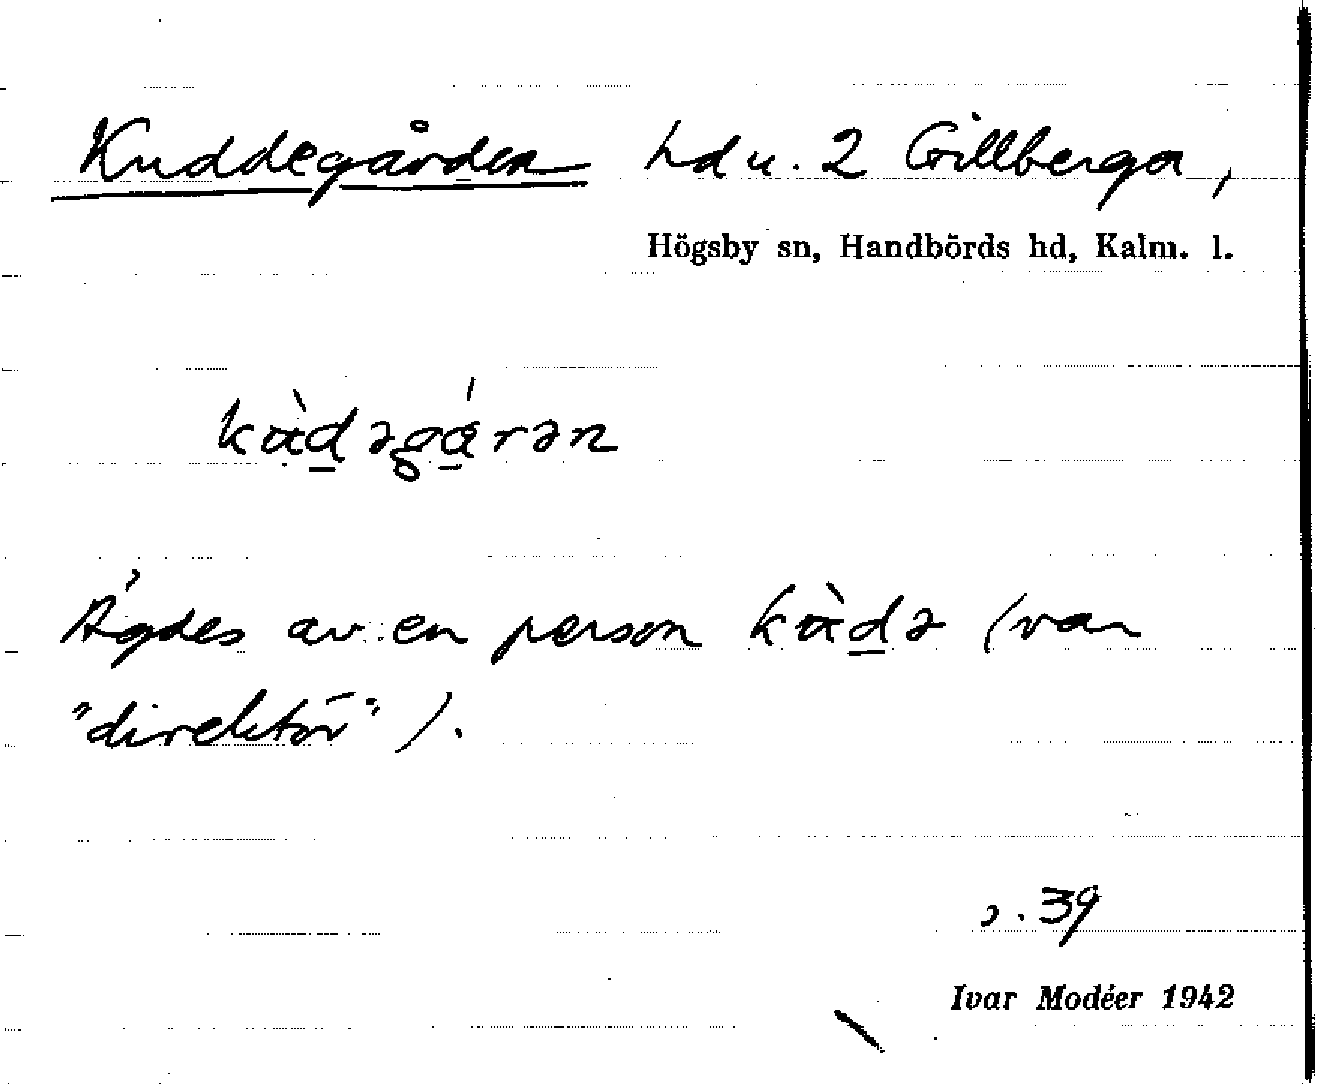 Kuddegården hd u. 2 Gillberga,
Högsby sn, Handbörds hd, Kalm. l.
kàdəgárən
Ägdes av en person kàdə (var
"direktör").
s. 39
Ivar Modéer 1942